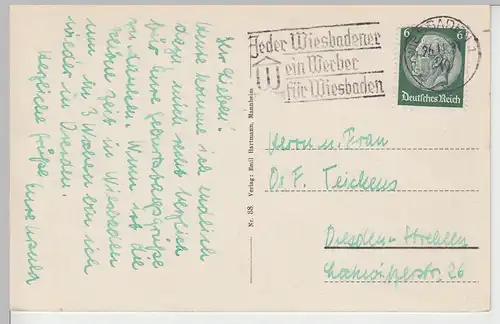 Ihr Lieben!
Heute komme ich endlich
dazu, mich recht herzlich
für Eure Geburtstagsgrüße
zu danken. Nun ist die
schöne Zeit in Wiesbaden
um, in 3 Wochen bin ich
wieder in Dresden.
Herzliche Grüße Eure
Jeder Wiesbadener
ein Werber
für Wiesbaden
6 6
Deutsches Reich
Nr. 88. Verlag: Emil Hartmann, Mannheim
Herrn u. Frau
Dr. F. Teichens
Dresden-Strehlen
Lockwitzerstr. 26